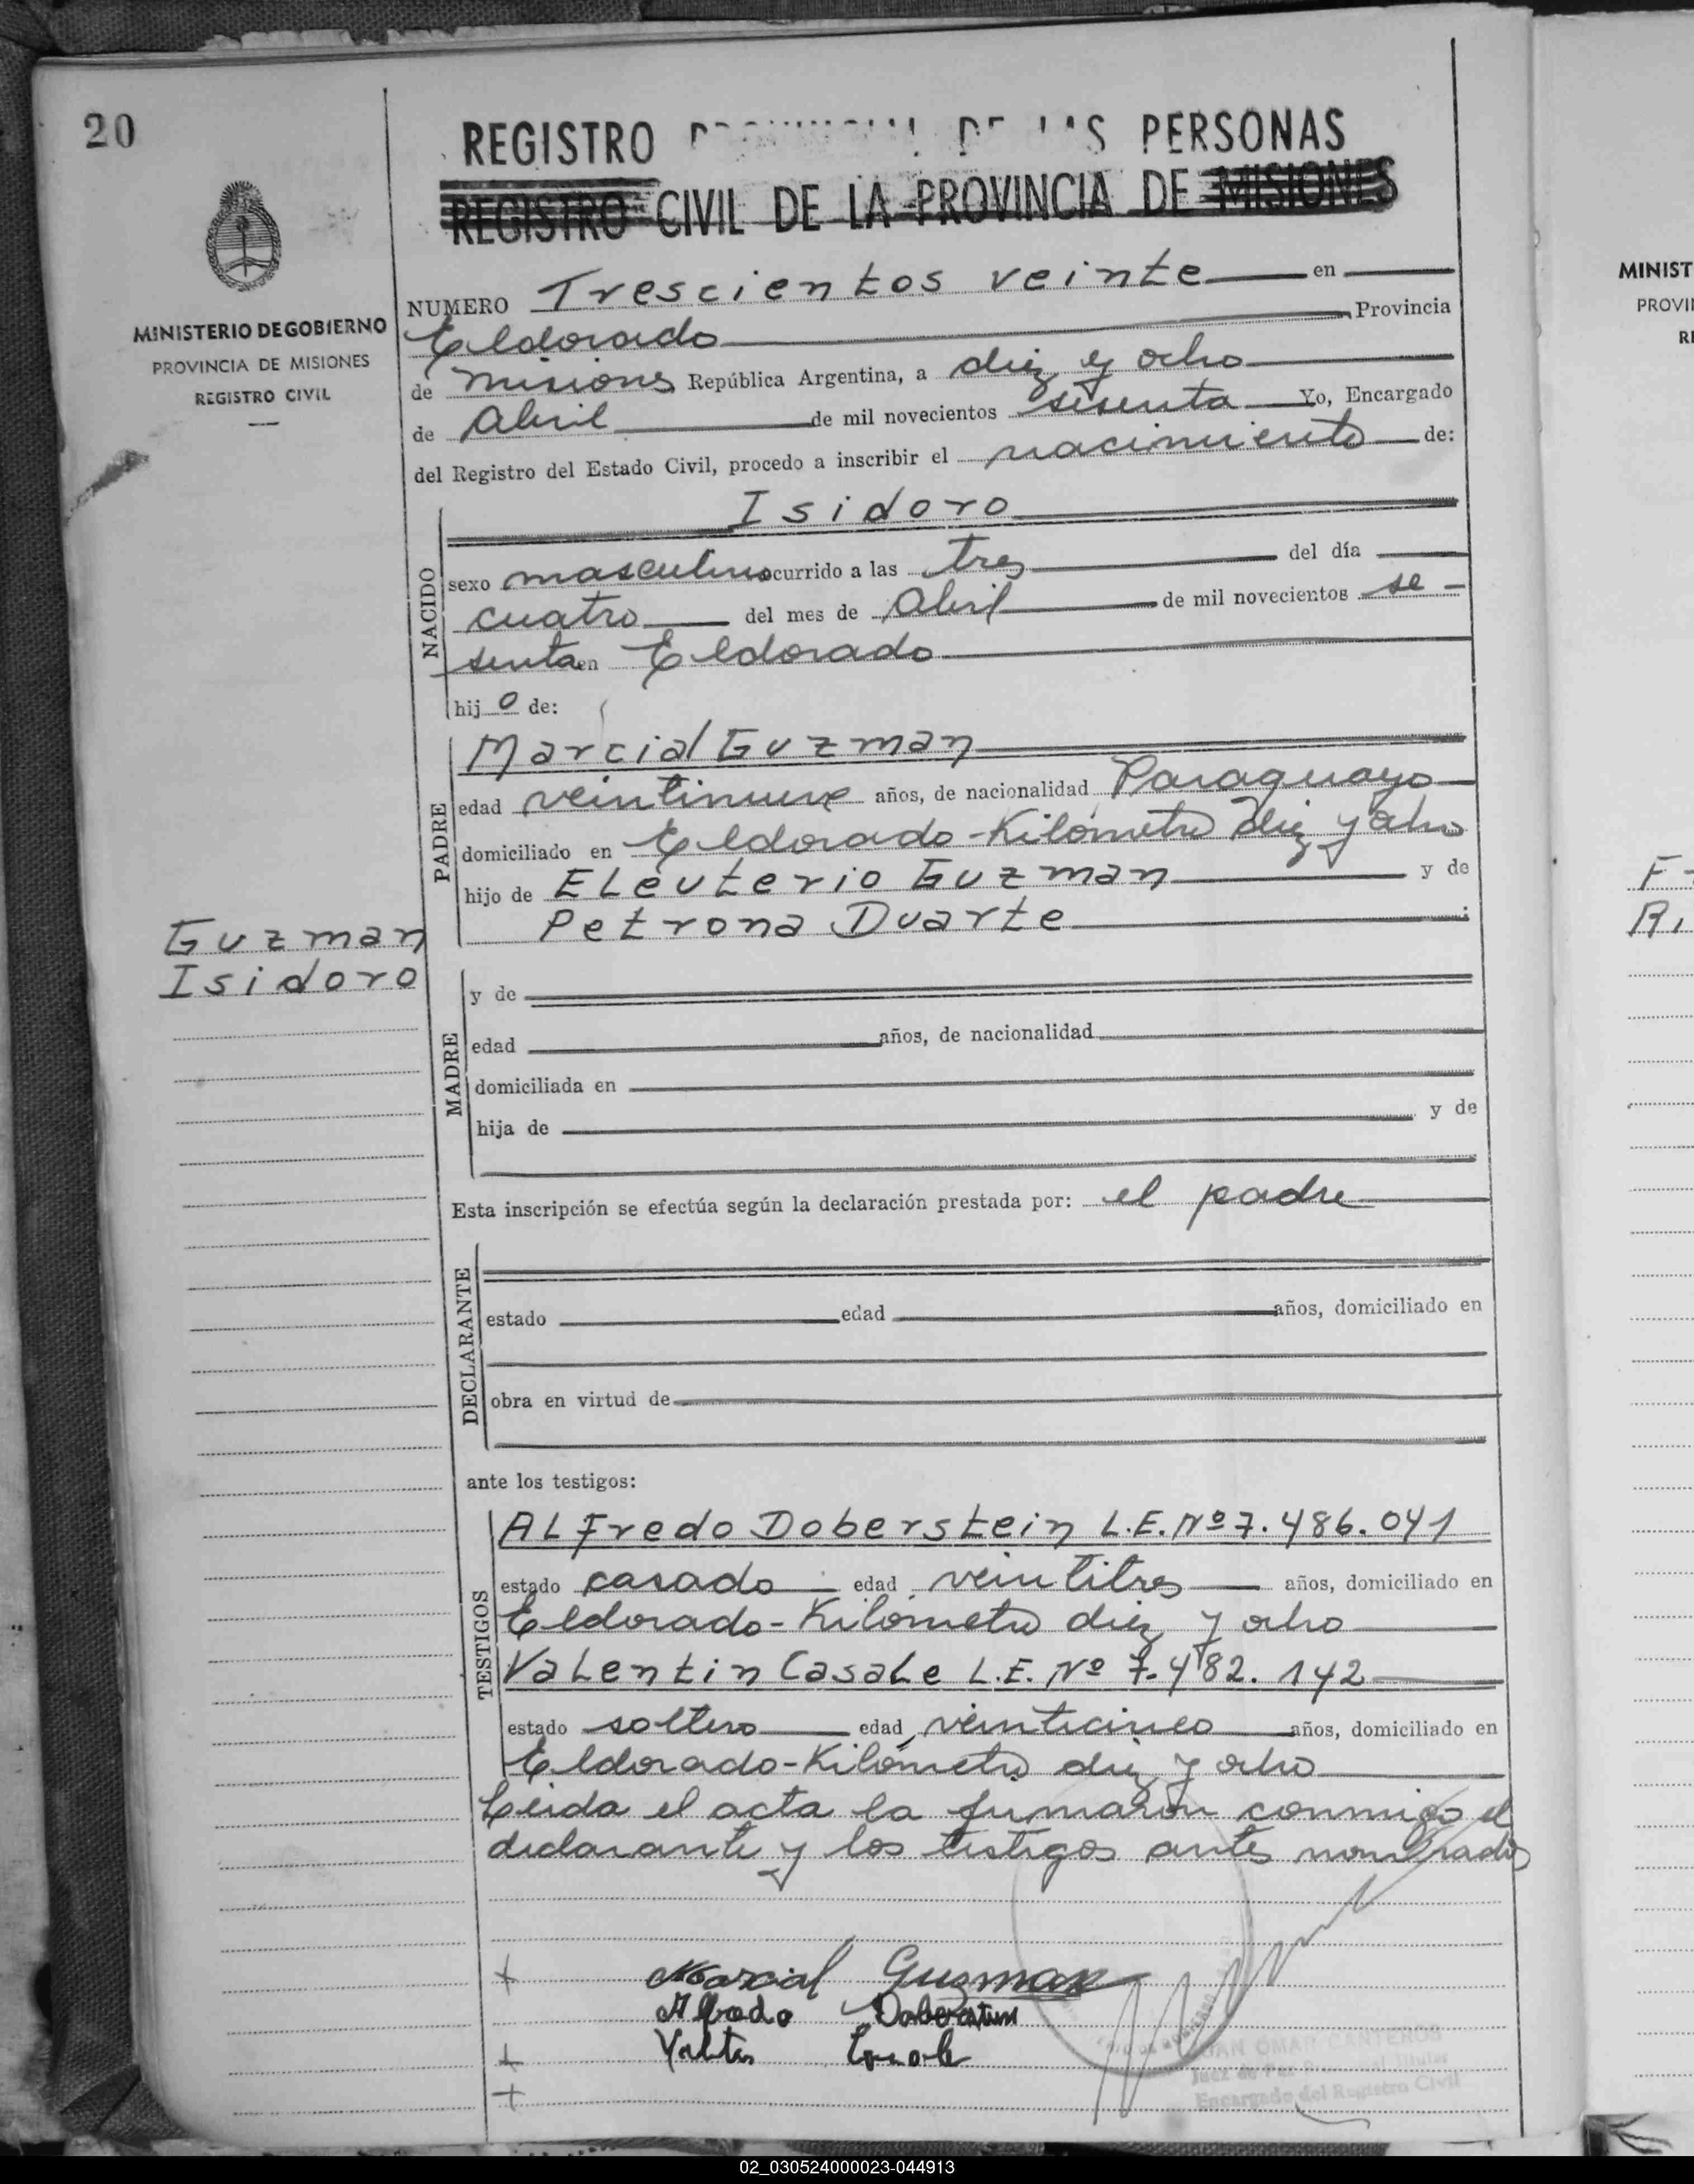 20
REGISTRO PROVINCIAL DE LAS PERSONAS
REGISTRO CIVIL DE LA PROVINCIA DE MISIONES
MINISTERIO DE GOBIERNO
PROVINCIA DE MISIONES
REGISTRO CIVIL
NUMERO Trescientos veinte en
Eldorado Provincia
de Misiones República Argentina, a diez y ocho
de Abril de mil novecientos sesenta Yo, Encargado
del Registro del Estado Civil, procedo a inscribir el nacimiento de:
NACIDO
Isidoro
sexo masculino ocurrido a las tres del día
cuatro del mes de Abril de mil novecientos se-
senta en Eldorado
hijo de:
PADRE
Marcial Guzman
edad veintinueve años, de nacionalidad Paraguayo
domiciliado en Eldorado-Kilómetro diez y ocho
hijo de Eleuterio Guzman y de
Petrona Duarte
Guzman
Isidoro
MADRE
y de
edad años, de nacionalidad
domiciliada en
hija de y de
Esta inscripción se efectúa según la declaración prestada por: el padre
DECLARANTE
estado edad años, domiciliado en
obra en virtud de
ante los testigos:
TESTIGOS
Alfredo Doberstein L.E. Nº 7.486.041
estado casado edad veintitres años, domiciliado en
Eldorado-Kilómetro diez y ocho
Valentin Casale L.E. Nº 7.482.142
estado soltero edad veinticinco años, domiciliado en
Eldorado-Kilómetro diez y ocho
Leida el acta la firmaron conmigo el
declarante y los testigos antes nombrados
Marcial Guzman
Alfredo Doberstein
JUAN OMAR CANTEROS
Juez de Paz Titular
Encargado del Registro Civil
MINIST
PROVI
RE
F
Ri
02_030524000023-044913